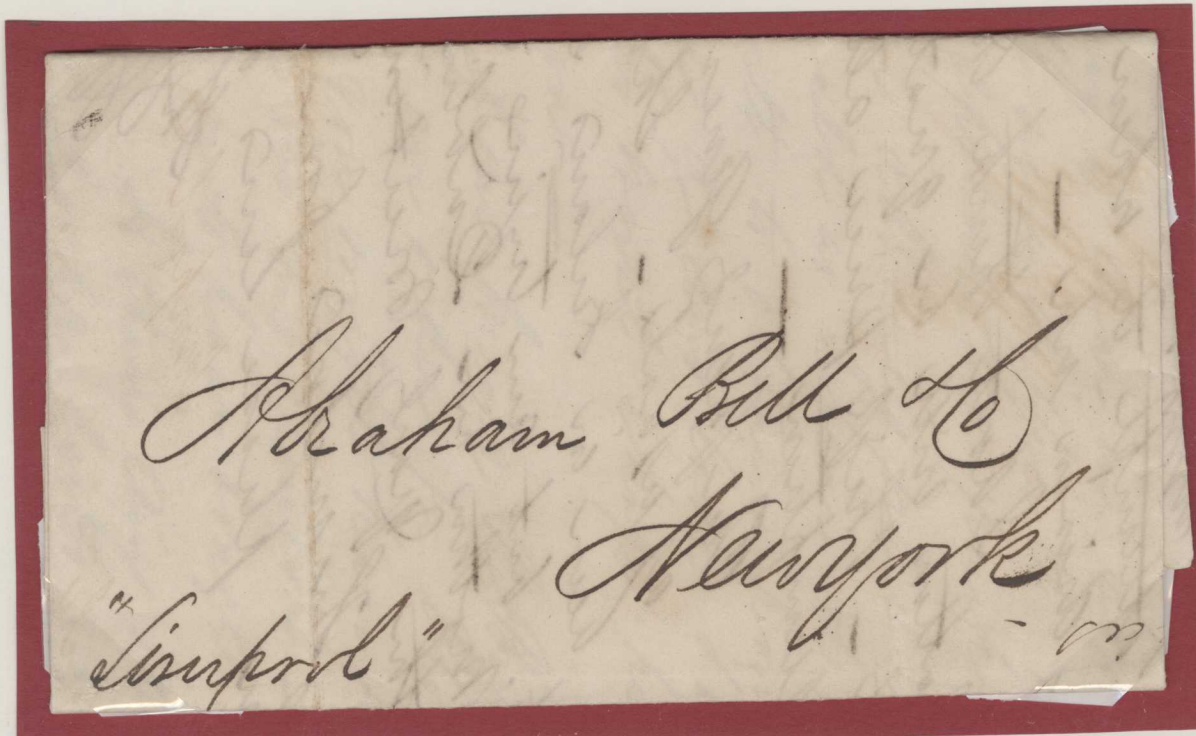 Abraham Bell & Co
Newyork
"Liverpool"